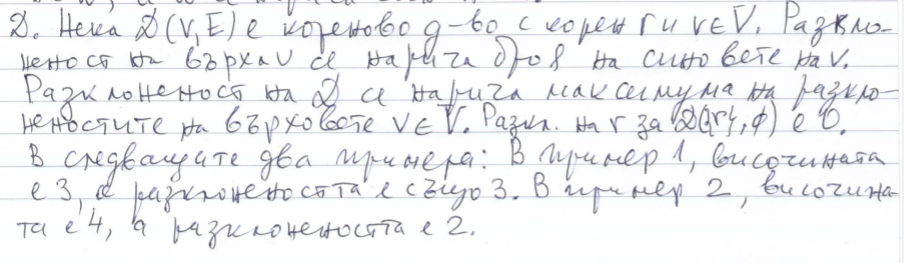 D. Нека D(V,E) е кореново д-во с корен r и v∈V. Разкло-
неност на върха v се нарича броя на синовете на v.
Разклоненост на D се нарича максимума на разкло-
неностите на върховете v∈V. Разкл. на r за D({r},ϕ) е 0.
В следващите два примера: В пример 1, височината
е 3, а разклонеността е също 3. В пример 2, височина-
та е 4, а разклонеността е 2.